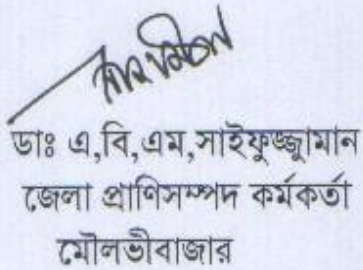 ডাঃ এ,বি,এম,সাইফুজ্জামান
জেলা প্রাণিসম্পদ কর্মকর্তা
মৌলভীবাজার